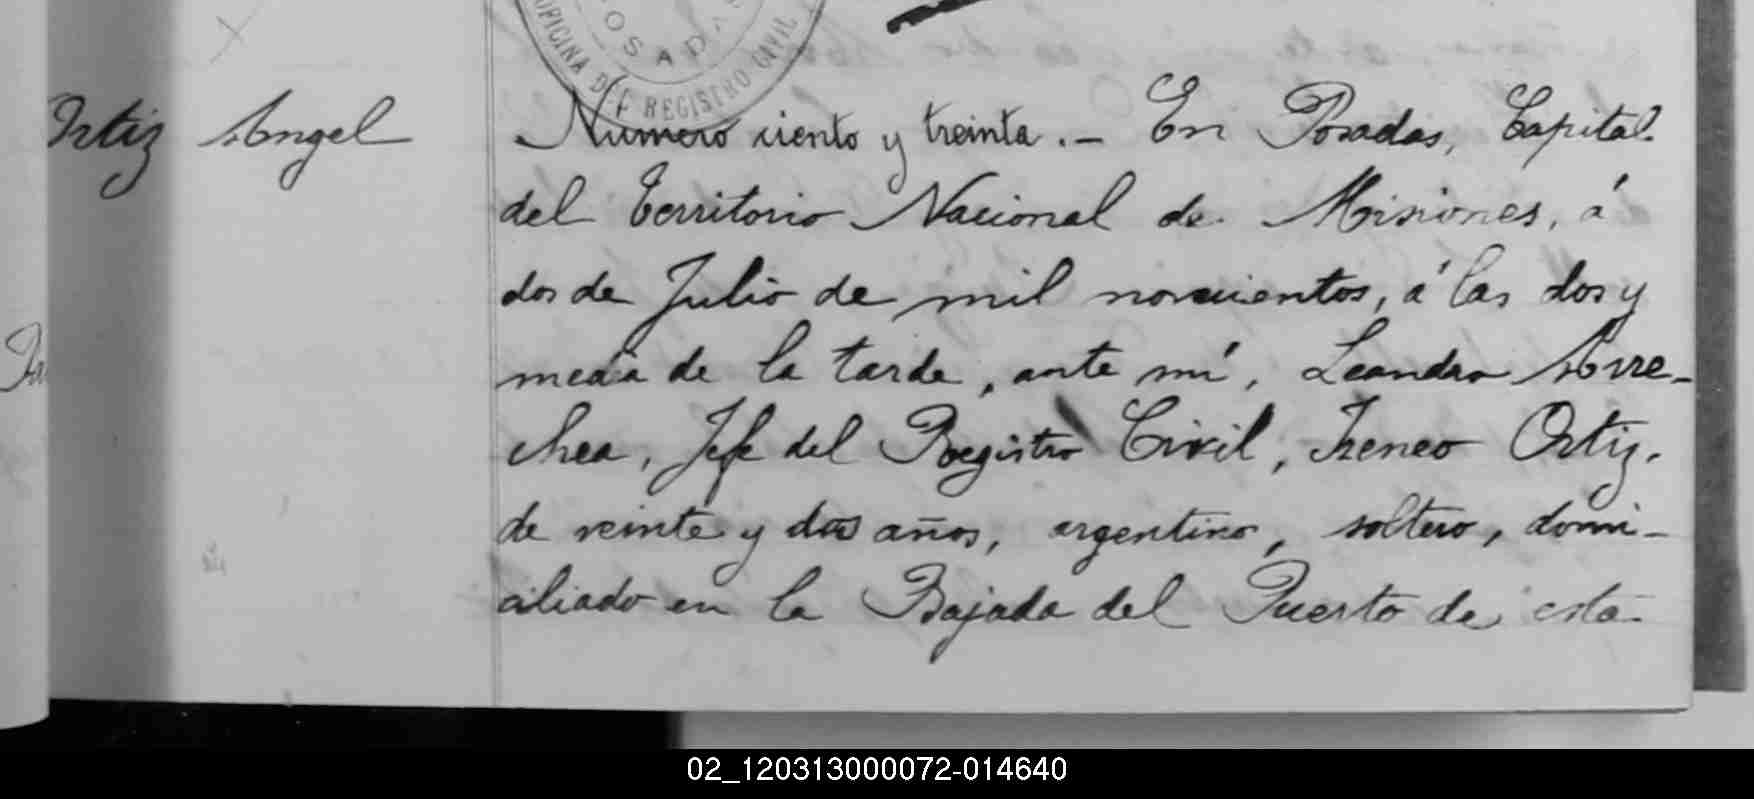 POSADAS
OFICINA DEL REGISTRO CIVIL
Ortiz Angel
Numero ciento y treinta.- En Posadas, Capital
del Territorio Nacional de Misiones, á
dos de Julio de mil novecientos, á las dos y
media de la tarde, ante mí, Leandro Arre-
chea, Jefe del Registro Civil, Ireneo Ortiz,
de veinte y dos años, argentino, soltero, domi-
ciliado en la Bajada del Puerto de esta
02_120313000072-014640